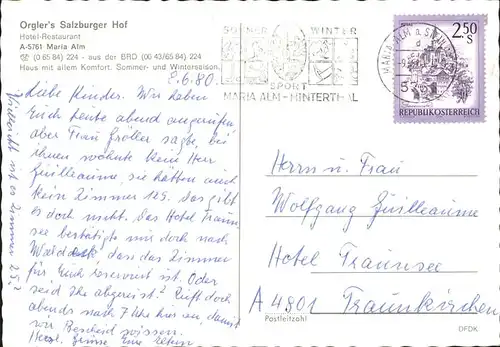 Orgler's Salzburger Hof
Hotel-Restaurant
A-5761 Maria Alm
☎ (0 65 84) 224 - aus der BRD (00 43/65 84) 224
Haus mit allem Komfort. Sommer- und Wintersaison.
SOMMER WINTER
SPORT
MARIA ALM-HINTERTHAL
MARIA ALM a. St
2.50
S
REPUBLIK ÖSTERREICH
8.6.80
Liebe Kinder. Wir haben
Euch heute abend angerufen
aber Frau Groller sagte, bei
ihnen wohnte kein Herr
Guilleaume, sie hätten auch
kein Zimmer 125. Das gibt
es doch nicht. Das Hotel Traun
see bestätigte mir doch nach
Walddeck, das das Zimmer
für Euch reserviert ist. Oder
seid Ihr abgereist? Ruft doch
abends nach 7 Uhr hier an, damit
wir Bescheid wissen.
Herzl. Grüsse Eure
Vielleicht ist es Zimmer 25?
Herrn u. Frau
Wolfgang Guilleaume
Hotel Traunsee
A 4801 Traunkirchen
Postleitzahl
DFDK